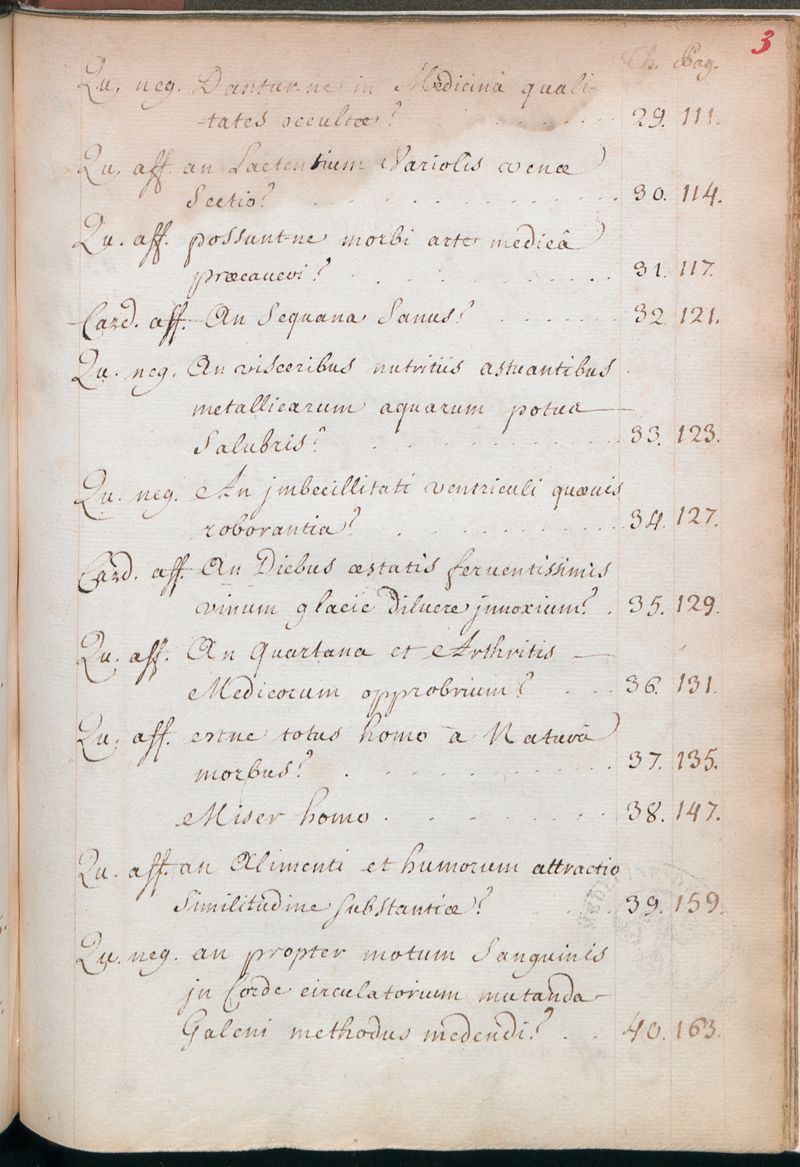 3
Th. Pag.
Qu. neg. Dantur-ne in Medicinâ quali-
tates occultæ? 29. 111.
Qu. aff. an Lactentium Variolis venæ
Sectio? 30. 114.
Qu. aff. possunt-ne morbi arte medicâ
præcaveri? 31. 117.
Card. aff. An Sequana Sanus? 32 121.
Qu. neg. An visceribus nutritiis æstuantibus
metallicarum aquarum potus
Salubris? 33. 123.
Qu. neg. An jmbecillitati ventriculi quævis
roborantia? 34. 127.
Card. aff. An Diebus æstatis ferventissimis
vinum glacie diluere jnnoxium? 35. 129.
Qu. aff. An Quartana et Arthritis
Medicorum opprobrium? 36. 131.
Qu. aff. estne totus homo à Naturâ
morbus? 37. 135.
Miser homo 38. 147.
Qu. aff. an Alimenti et humorum attractio
Similitudine substantiæ? 39. 159.
Qu. neg. an propter motum Sanguinis
jn Corde circulatorium mutanda
Galeni methodus medendi? 40. 163.